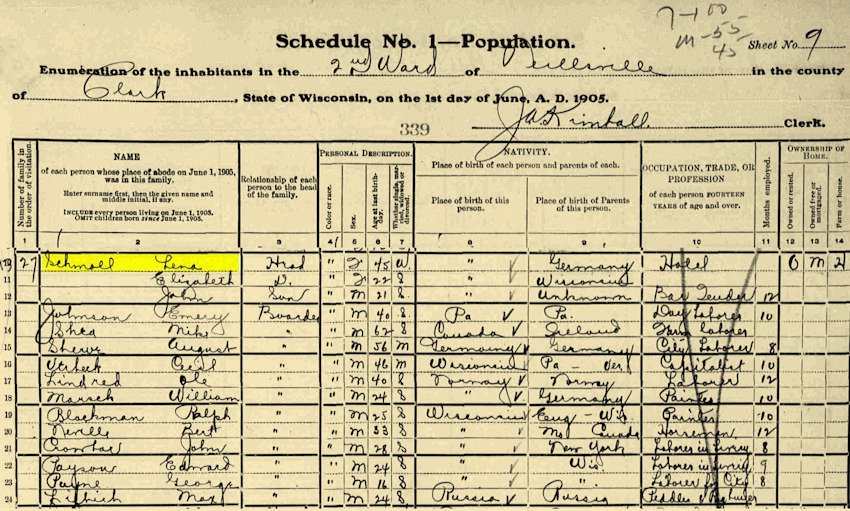 7-100
m-55
45
Schedule No. 1—Population.
Sheet No. 9
Enumeration of the inhabitants in the 2nd Ward of Neillsville in the county
of Clark, State of Wisconsin, on the 1st day of June, A. D. 1905.
339
J.A. Kimball. Clerk.
Number of family in the order of visitation.
NAME
of each person whose place of abode on June 1, 1905, was in this family.
Enter surname first, then the given name and middle initial, if any.
INCLUDE every person living on June 1, 1905.
OMIT children born since June 1, 1905.
Relationship of each person to the head of the family.
PERSONAL DESCRIPTION.
Color or race.
Sex.
Age at last birthday.
Whether single, married, widowed or divorced.
NATIVITY.
Place of birth of each person and parents of each.
Place of birth of this person.
Place of birth of Parents of this person.
OCCUPATION, TRADE, OR PROFESSION
of each person FOURTEEN YEARS of age and over.
Months employed.
OWNERSHIP OF HOME.
Owned or rented.
Owned free or mortgaged.
Farm or house.
1 2 3 4 5 6 7 8 9 10 11 12 13 14
27 Schmoll Lena Head " F 45 W. " Germany Hotel O M H
11 Elizabeth D. " F 22 S " Wisconsin
12 John Son " M 21 S " Unknown Bar Tender 12
13 Johnson Emery Boarder " M 40 S Pa Pa. Day Laborer 10
14 Shea Mike " " M 62 S Canada Ireland Farm laborer
15 August " " M 56 M Germany Germany City Laborer 8
16 Cecil " " M 46 M Wisconsin Pa - Ver Capitalist 10
17 Lindred Ole " " M 40 S Norway Norway Laborer 12
18 Marsch William " " M 24 S " Germany Painter 10
19 Blackman Ralph " " M 25 S Wisconsin Eng - Wis Painter 10
20 Neville Bert " " M 33 S " Canada Horseman 12
21 John " " M 28 S " New York Laborer in Livery 8
22 Payson Edward " " M 24 S " Wis Laborer in Livery 9
23 Payne George " " M 16 S " " Laborer for City 8
24 Max " " M 24 S Russia Russia Peddler